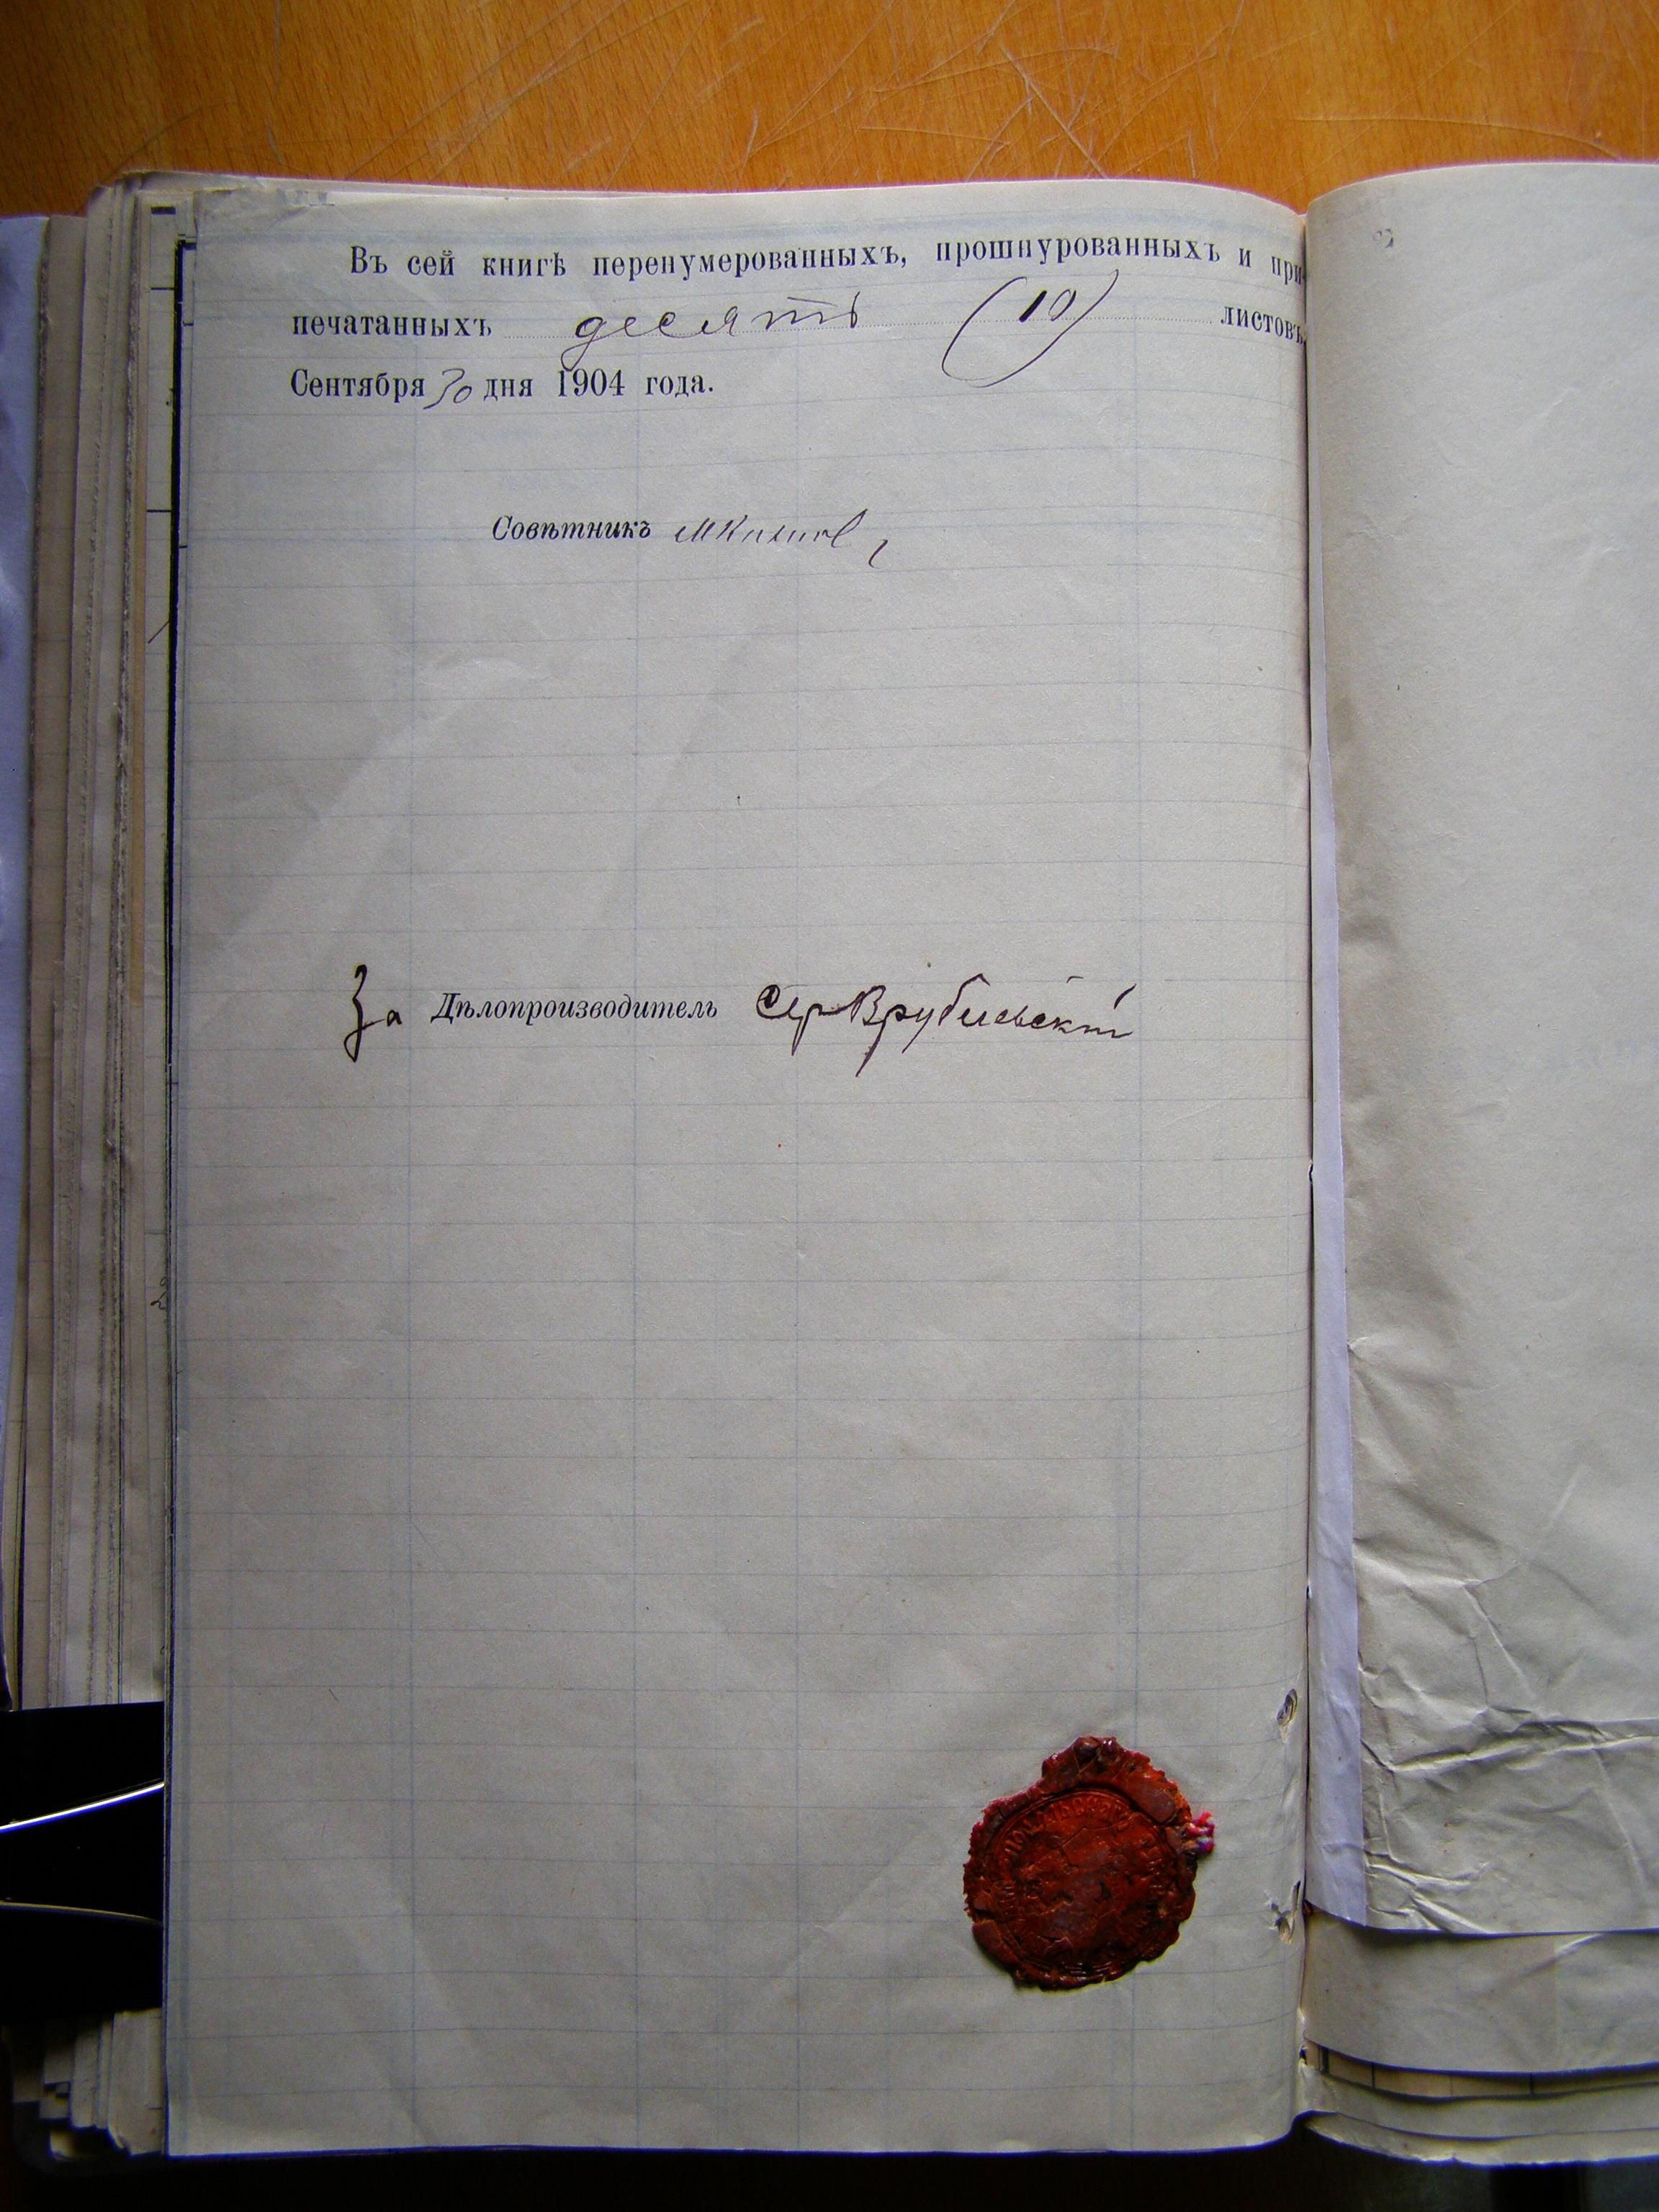 Въ сей книгѣ перенумерованныхъ, прошнурованныхъ и при-
печатанныхъ десять (10) листовъ
Сентября 30 дня 1904 года.
Совѣтникъ
За Дѣлопроизводитель Сер Врублевскій